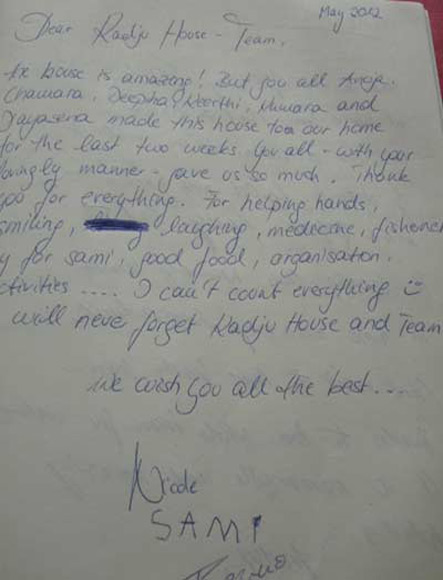 May 2012
Dear Kadju House - Team,
he house is amazing! But you all Aroja,
Chamara, Deepha, Keerthi, Numara and
Jayasena made this house too our home
for the last two weeks. You all - with your
lovingly manner - gave us so much. Thank
you for everything. For helping hands,
smiling, laughing, medicine, fishermen
y for sami, good food, organisation,
ctivities .... I can't count everything ☺
will never forget Kadju House and Team
We wish you all the best....
Nicole
SAMI